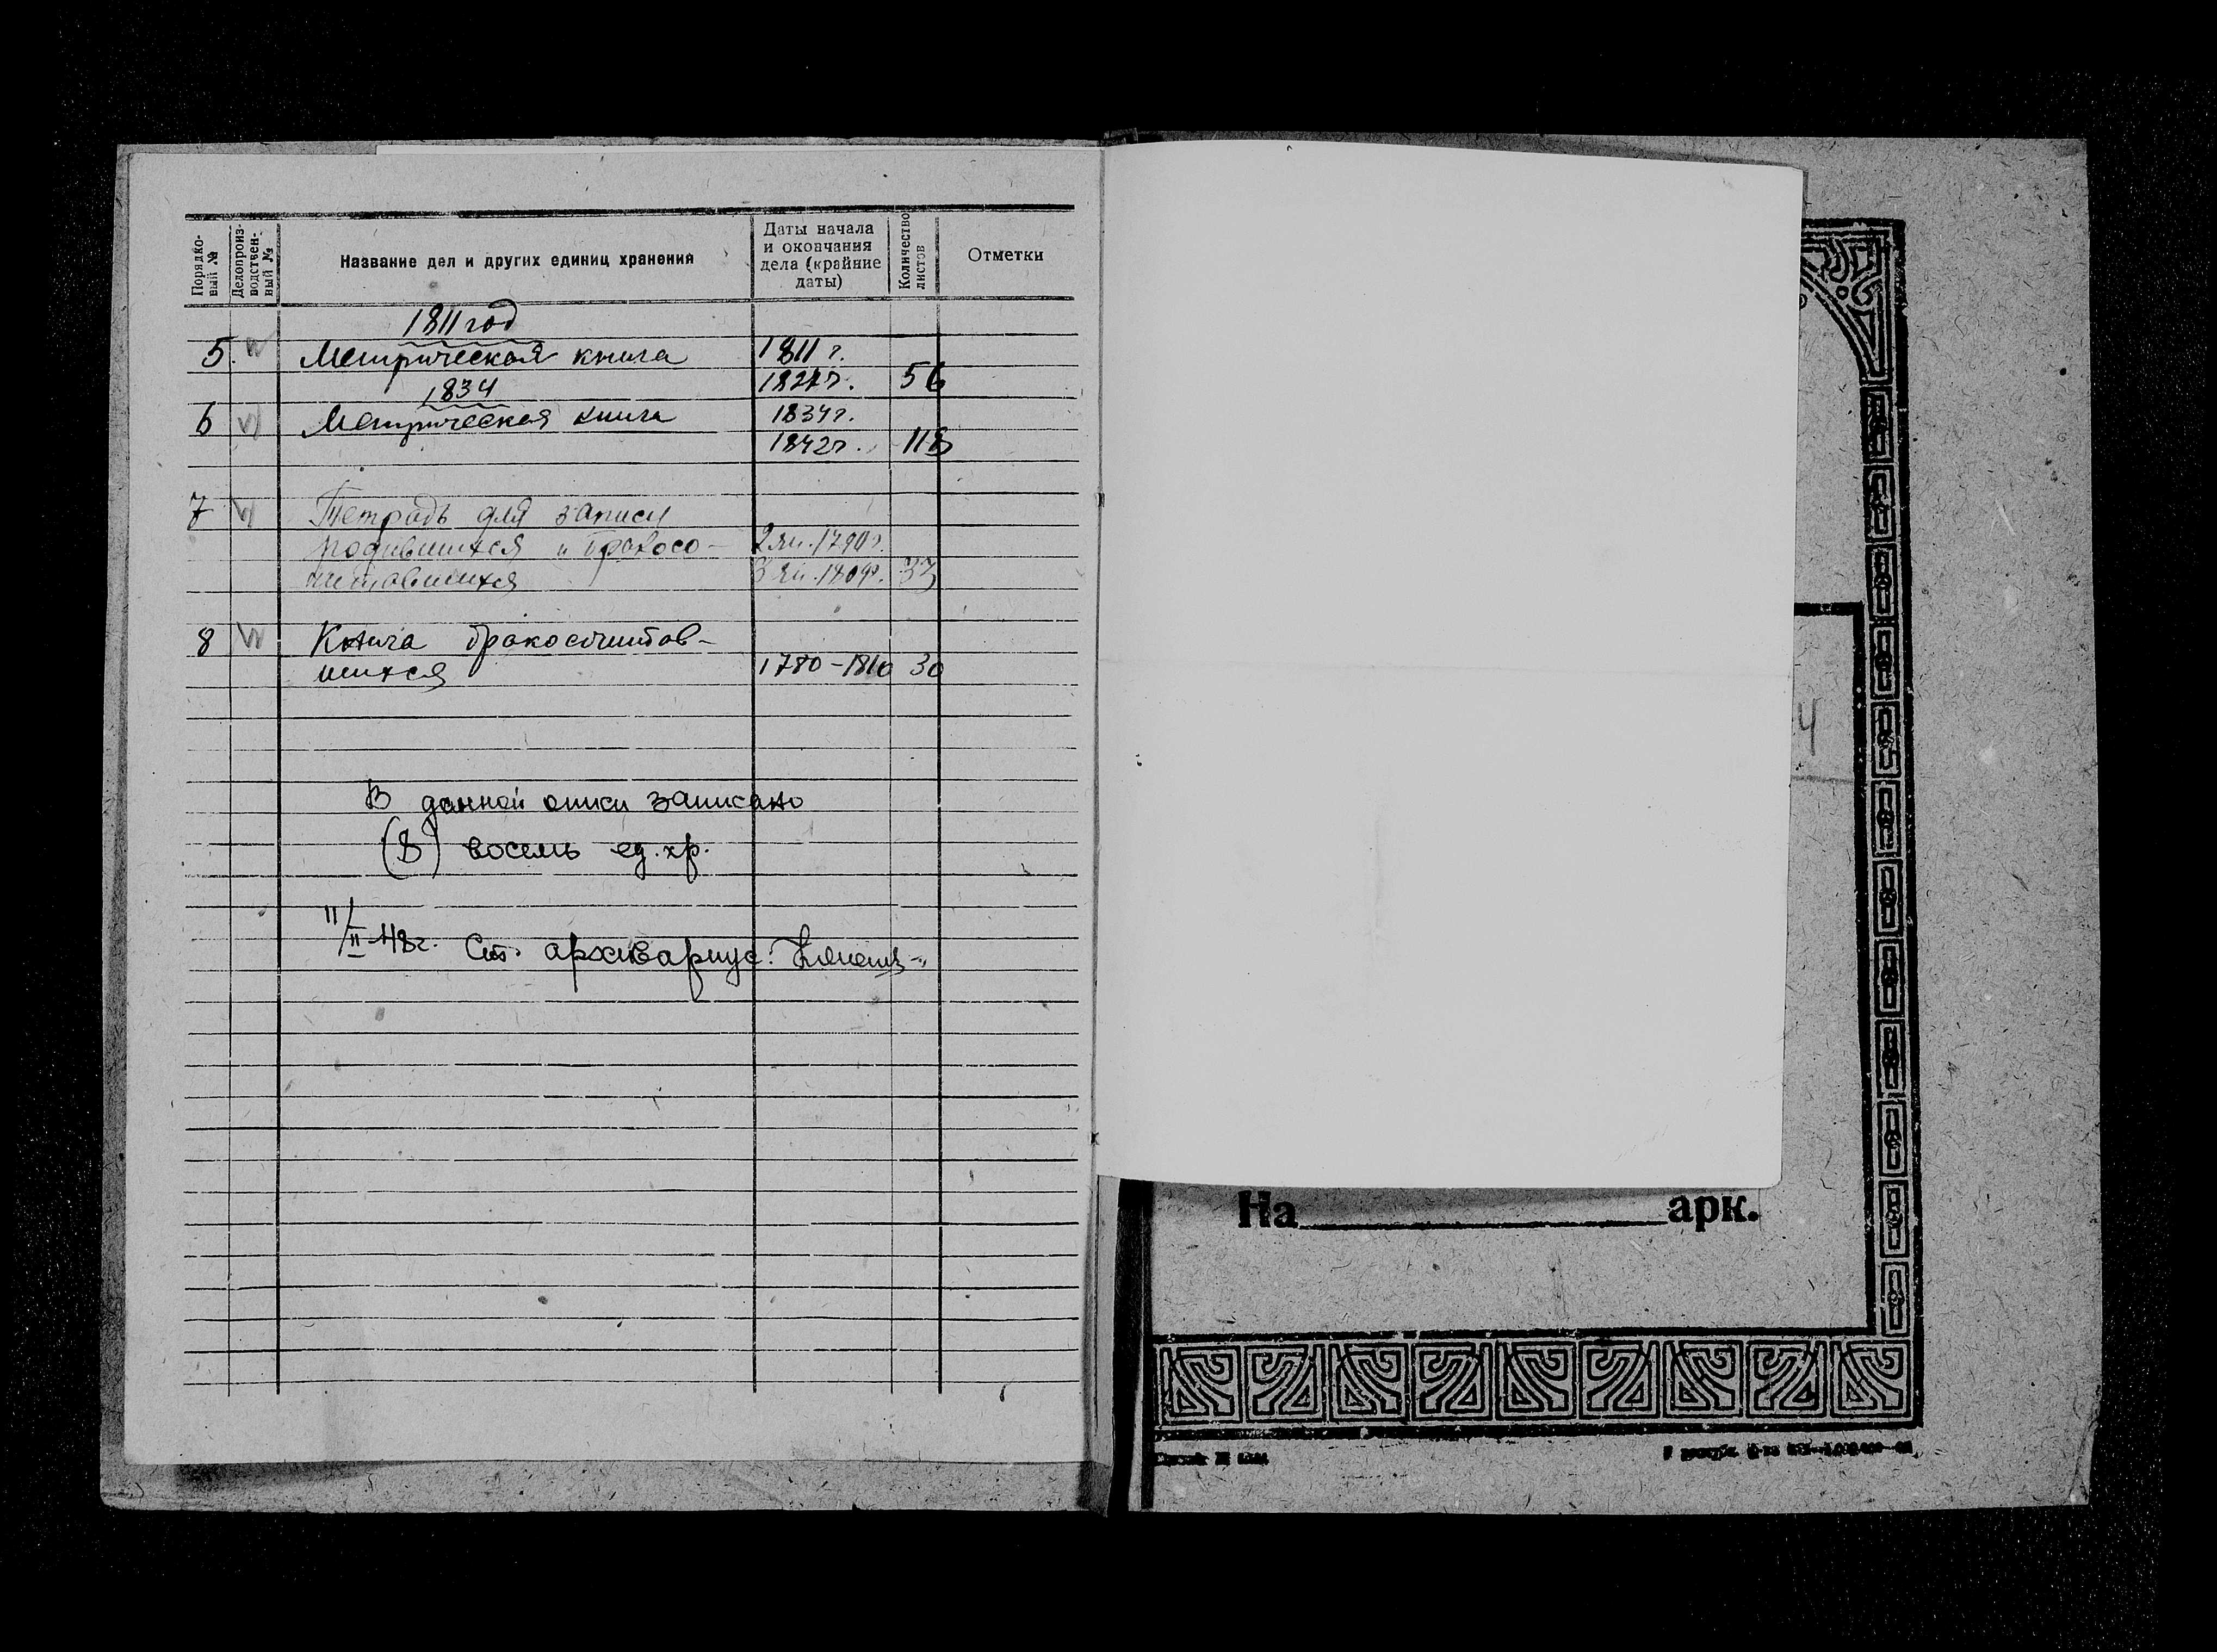 Порядко-
вый №
Делопроиз-
водствен-
ный №
Название дел и других единиц хранения
Даты начала
и окончания
дела (крайние
даты)
Количество
листов
Отметки
1811 год
5. Метрическая книга 1811 г.
56
1834
6 Метрическая книга 1834 г.
1842 г. 118
7 Тетрадь для записи
родившихся и бракосо- 2 ян. 1790 г.
читавшихся 3 ян. 33
8 Книга бракосочитав-
шихся 1780-1810 30
В данной описи записано
(8) восемь ед. хр.
11/II-48г. Ст. архивариус:
4
На арк.